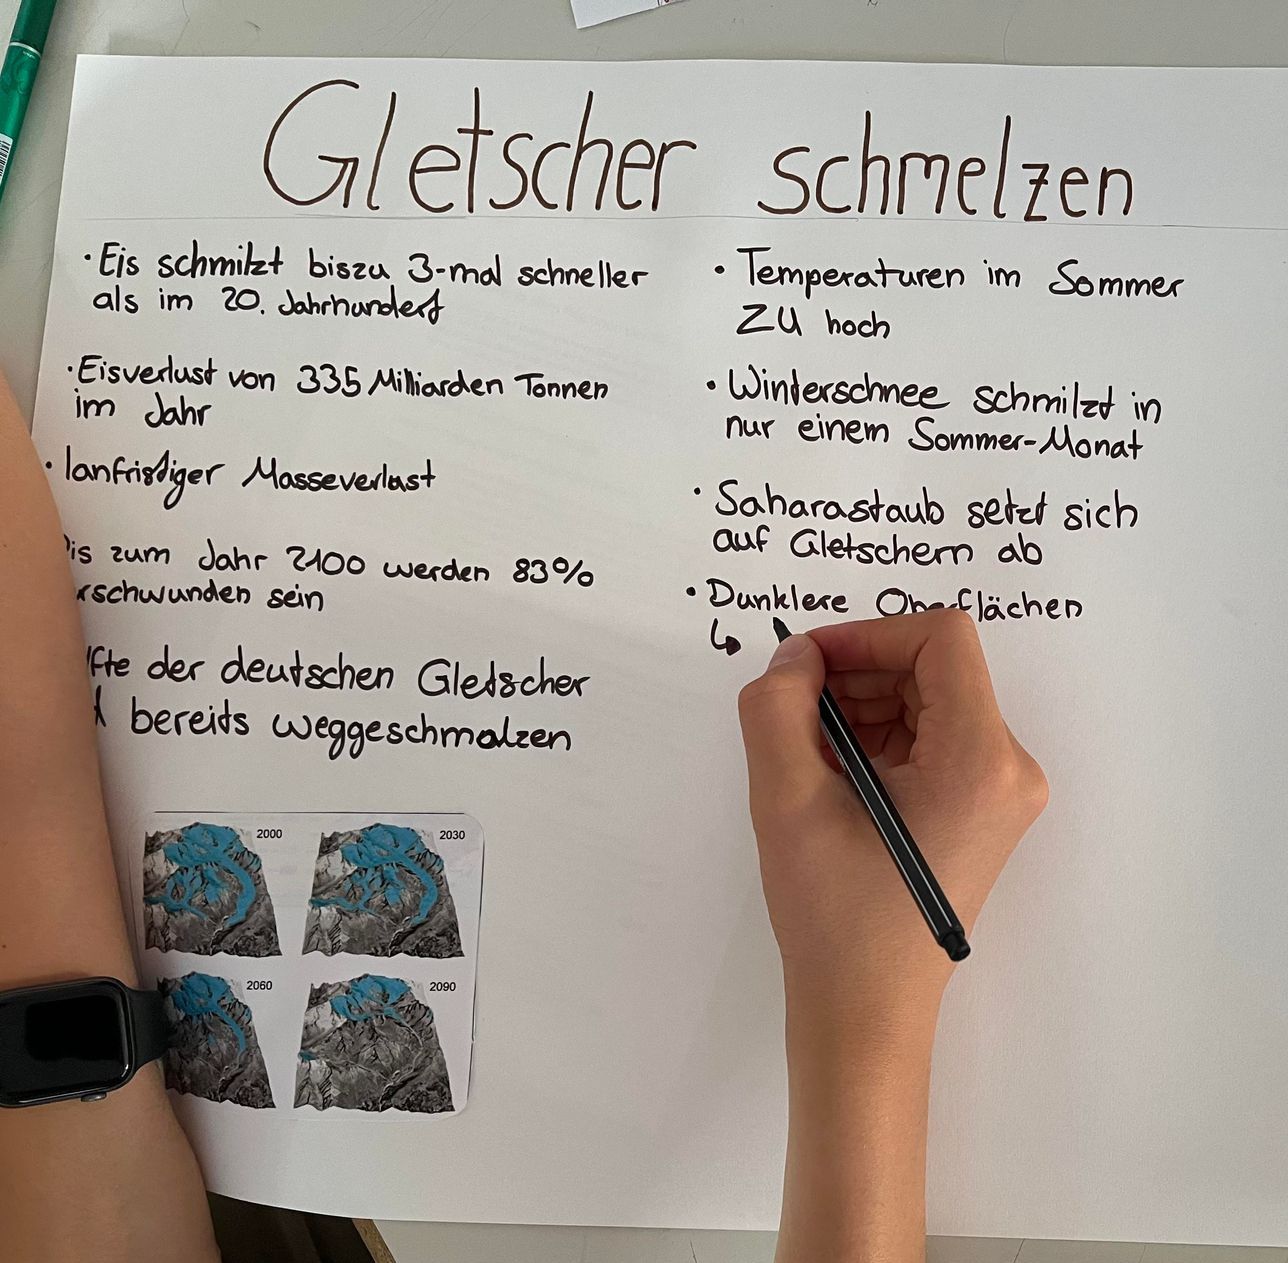 Gletscher schmelzen
· Eis schmilzt biszu 3-mal schneller
als im 20. Jahrhundert
· Eisverlust von 335 Milliarden Tonnen
im Jahr
· lanfristiger Masseverlust
is zum Jahr 2100 werden 83%
rschwunden sein
fte der deutschen Gletscher
bereits weggeschmolzen
2000
2030
2060
2090
· Temperaturen im Sommer
ZU hoch
· Winterschnee schmilzt in
nur einem Sommer-Monat
· Saharastaub setzt sich
auf Gletschern ab
· Dunklere Oberflächen
↳